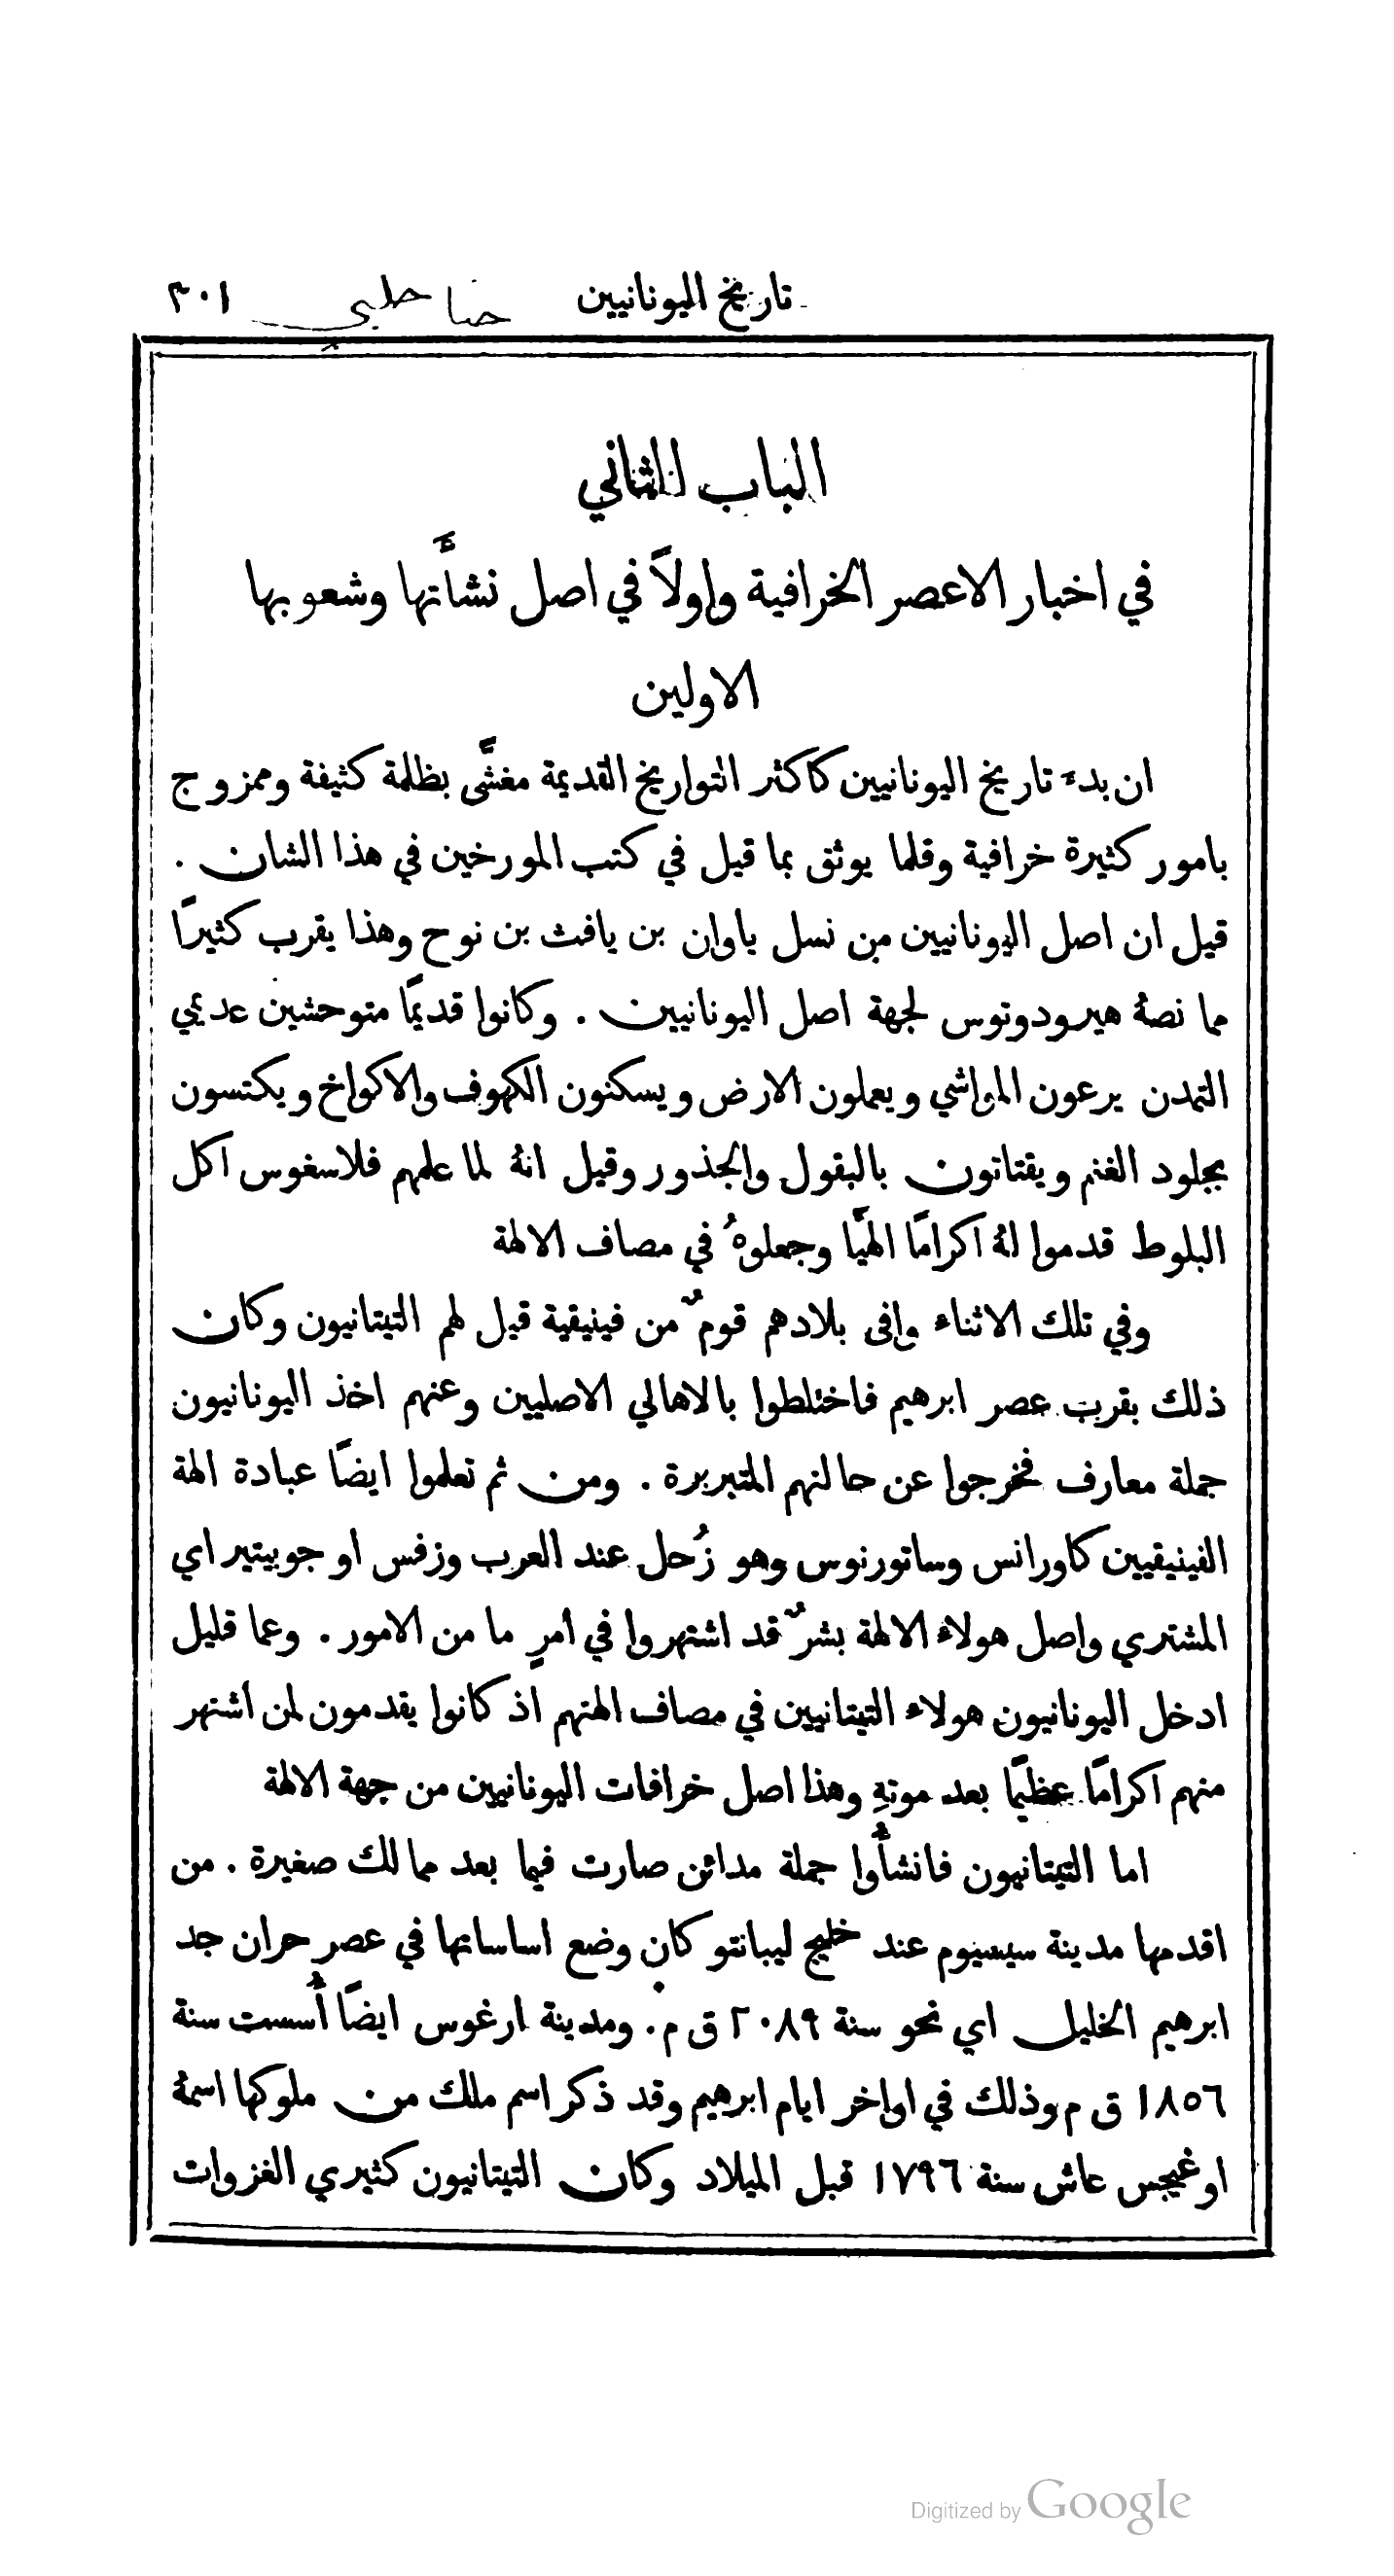 تاريخ اليونانيين حنا حلبي ٣٠١
الباب الثاني
في اخبار الاعصر الخرافية واولاً في اصل نشأَتها وشعوبها
الاولين
ان بدء تاريخ اليونانيين كاكثر التواريخ القديمة مغشَّى بظلمة كثيفة وممزوج
بامور كثيرة خرافية وقلما يوثق بما قيل في كتب المورخين في هذا الشان .
قيل ان اصل اليونانيين من نسل ياوان بن يافث بن نوح وهذا يقرب كثيراً
مما نصهُ هيرودوتوس لجهة اصل اليونانيين . وكانوا قديمًا متوحشين عديمي
التمدن يرعون المواشي ويعملون الارض ويسكنون الكهوف والاكواخ ويكتسون
بجلود الغنم ويقتاتون بالبقول والجذور وقيل انهُ لما علمهم فلاسغوس اكل
البلوط قدموا لهُ اكرامًا الهيًّا وجعلوهُ في مصاف الالهة
وفي تلك الاثناء وافى بلادهم قومٌ من فينيقية قيل لهم التيتانيون وكان
ذلك بقرب عصر ابرهيم فاختلطوا بالاهالي الاصليين وعنهم اخذ اليونانيون
جملة معارف فخرجوا عن حالتهم المتبربرة . ومن ثم تعلموا ايضًا عبادة الهة
الفينيقيين كاورانس وساتورنوس وهو زُحل عند العرب وزفس او جوبيتير اي
المشتري واصل هولاء الالهة بشرٌ قد اشتهروا في امرٍ ما من الامور . وعما قليل
ادخل اليونانيون هولاء التيتانيين في مصاف الهتهم اذ كانوا يقدمون لمن اشتهر
منهم اكرامًا عظيمًا بعد موتهِ وهذا اصل خرافات اليونانيين من جهة الالهة
اما التيتانيون فانشأُوا جملة مدائن صارت فيما بعد ممالك صغيرة . من
اقدمها مدينة سيسيوم عند خليج ليبانتو كان وضع اساساتها في عصر حران جد
ابرهيم الخليل اي نحو سنة ٢٠٨٩ ق م. ومدينة ارغوس ايضًا أُسست سنة
١٨٥٦ ق م وذلك في اواخر ايام ابرهيم وقد ذكر اسم ملك من ملوكها اسمهُ
اوغيجس عاش سنة ١٧٩٦ قبل الميلاد وكان التيتانيون كثيري الغزوات
Digitized by Google